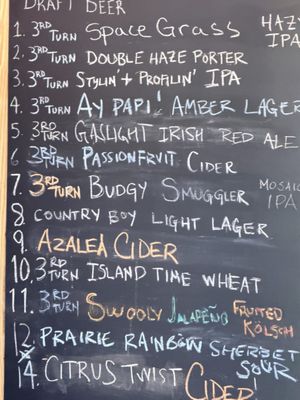 DRAFT BEER
1. 3RD TURN SPACE GRASS HAZY IPA
2. 3RD TURN DOUBLE HAZE PORTER
3. 3RD TURN STYLIN' + PROFILIN' IPA
4. 3RD TURN AY PAPI! AMBER LAGER
5. 3RD TURN GASLIGHT IRISH RED ALE
6 3RD TURN PASSIONFRUIT CIDER
7. 3RD TURN BUDGY SMUGGLER MOSAIC IPA
8. COUNTRY BOY LIGHT LAGER
9. AZALEA CIDER
10. 3RD TURN ISLAND TIME WHEAT
11. 3RD TURN SWOOLY JALAPEÑO FRUITED KÖLSCH
12. PRAIRIE RAINBOW SHERBET SOUR
14. CITRUS TWIST CIDER!